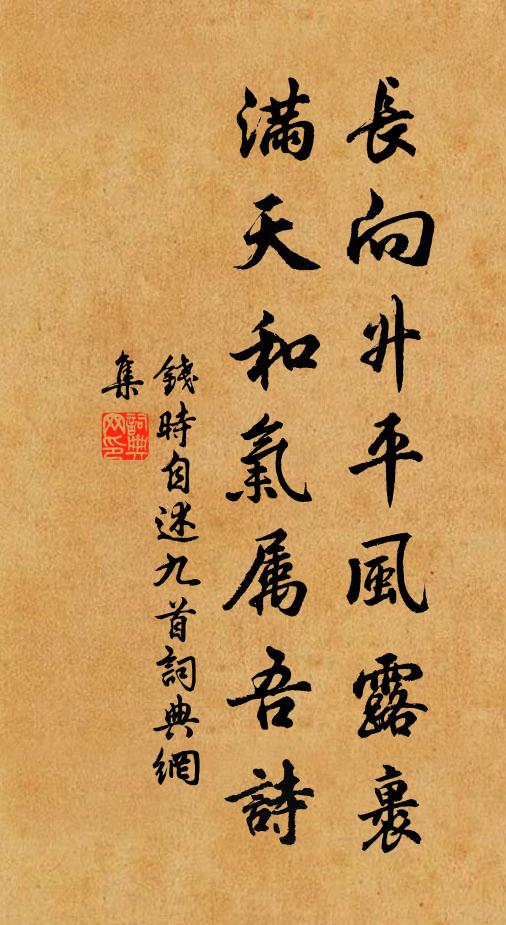 長向升平風露裏
滿天和氣属吾詩
錢時自述九首詞典網
集
詞典
网印